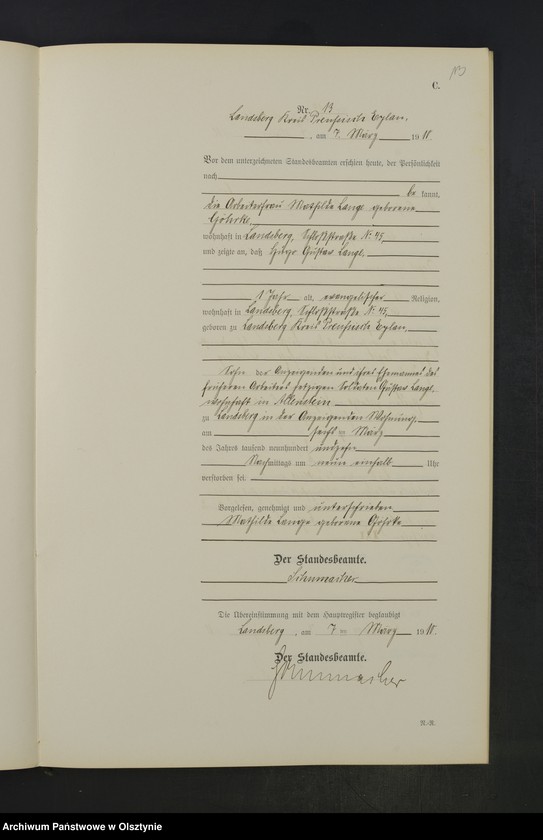 C.
Nr. 13
Landsberg Kreis Preußisch Eylau,
, am 7. März 1910.
Vor dem unterzeichneten Standesbeamten erschien heute, der Persönlichkeit
nach
be kannt,
die Arbeiterfrau Mathilde Lange geborene
Göhrke,
wohnhaft in Landsberg, Schloßstraße No 45,
und zeigte an, daß Gustav Lange,
1 Jahr alt, evangelischer Religion,
wohnhaft in Landsberg, Schloßstraße No 45,
geboren zu Landsberg Kreis Preußisch Eylau,
Sohn der Anzeigenden und ihres Ehemannes des
früheren Arbeiters jetzigen Soldaten Gustav Lange,
wohnhaft in Allenstein
zu Landsberg in der Anzeigenden Wohnung,
am sechs ten März
des Jahres tausend neunhundert und zehn
Nachmittags um neun einhalb Uhr
verstorben sei.
Vorgelesen, genehmigt und unterschrieben
Mathilde Lange geborene Göhrke
Der Standesbeamte.
Schumacher
Die Übereinstimmung mit dem Hauptregister beglaubigt
Landsberg, am 7 ten März 1910.
Der Standesbeamte.
Schumacher
Archiwum Państwowe w Olsztynie